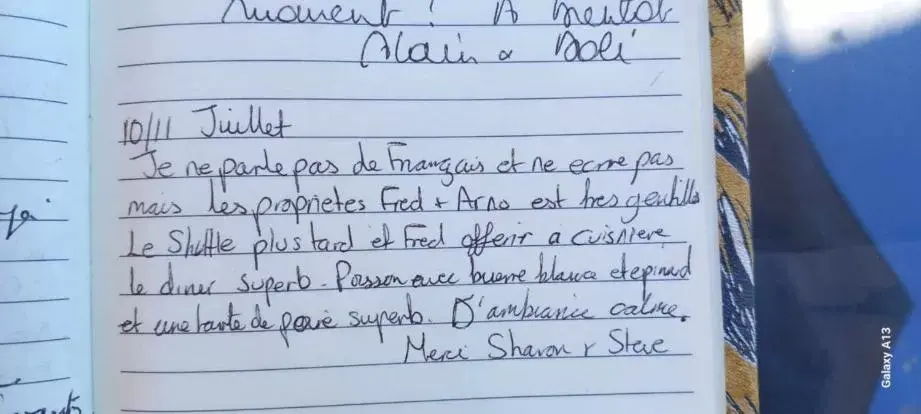 moment! A bientot
Alain & Doli
10/11 Juillet
Je ne parle pas de Français et ne ecrire pas
mais les proprietes Fred + Arno est tres gentills
Le Shuttle plus tard et Fred offerir a cuisniere
le diner superb. Poisson avec buerre blanca et epinard
et une tarte de poire superb. D'ambiance calme.
Merci Sharon & Steve
Galaxy A13